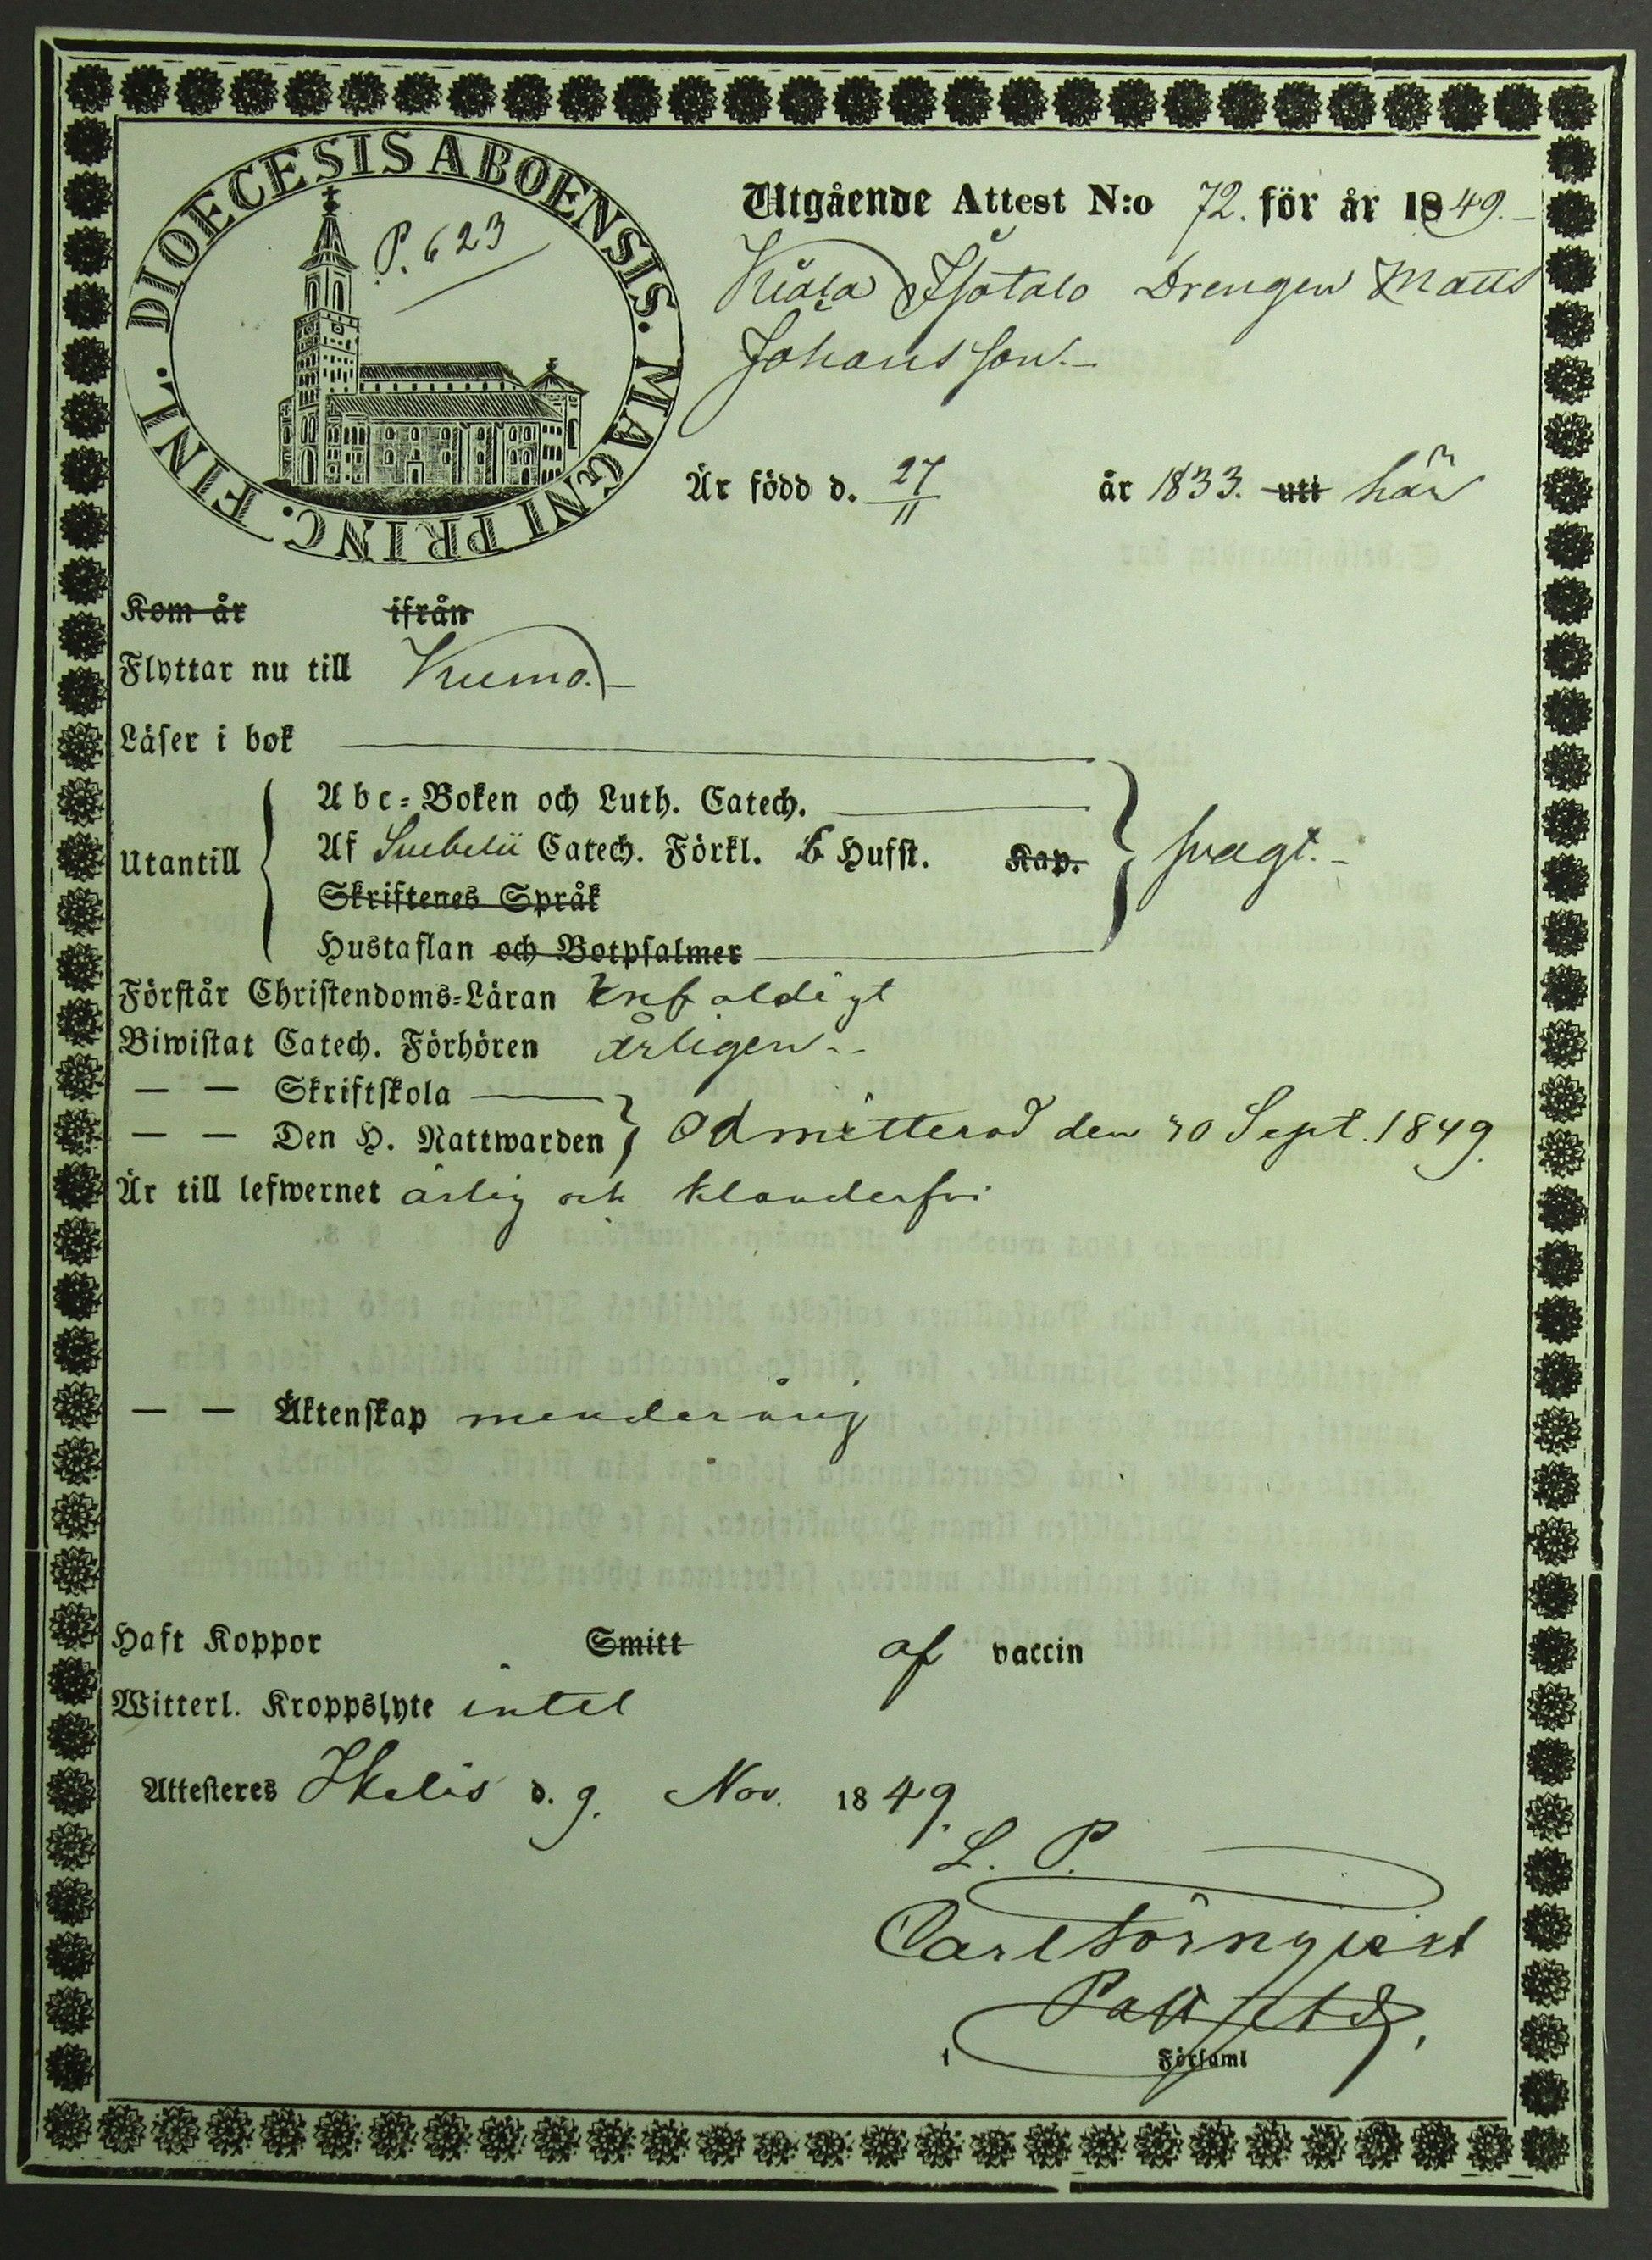 DIOECESIS ABOENSIS. MAGNI PRINC. FINL.
P. 623
Utgående Attest N:o 72. för år 1849.
Isotalo Drengen Matts
Johansson.
Är född d. 27/11 år 1833. uti här
Kom år ifrån
Flyttar nu till Kumo.
Läser i bok
Abc-Boken och Luth. Catech.
Utantill Af Svebelii Catech. Förkl. 6 Hufst. Kap. svagt.
Skriftenes Språk
Hustaflan och Botpsalmer
Förstår Christendoms-Läran enfaldigt
Biwistat Catech. Förhören årligen
— — Skriftskola
— — Den H. Nattwarden Admitterad den 30 Sept. 1849.
Är till lefwernet ärlig och klanderfri
— — Äktenskap menderårig
Haft Koppor Smitt af vaccin
Witterl. Kroppslyte intet
Attesteres d. 9. Nov. 1849.
L. P.
Carl Törnqvist
Församl